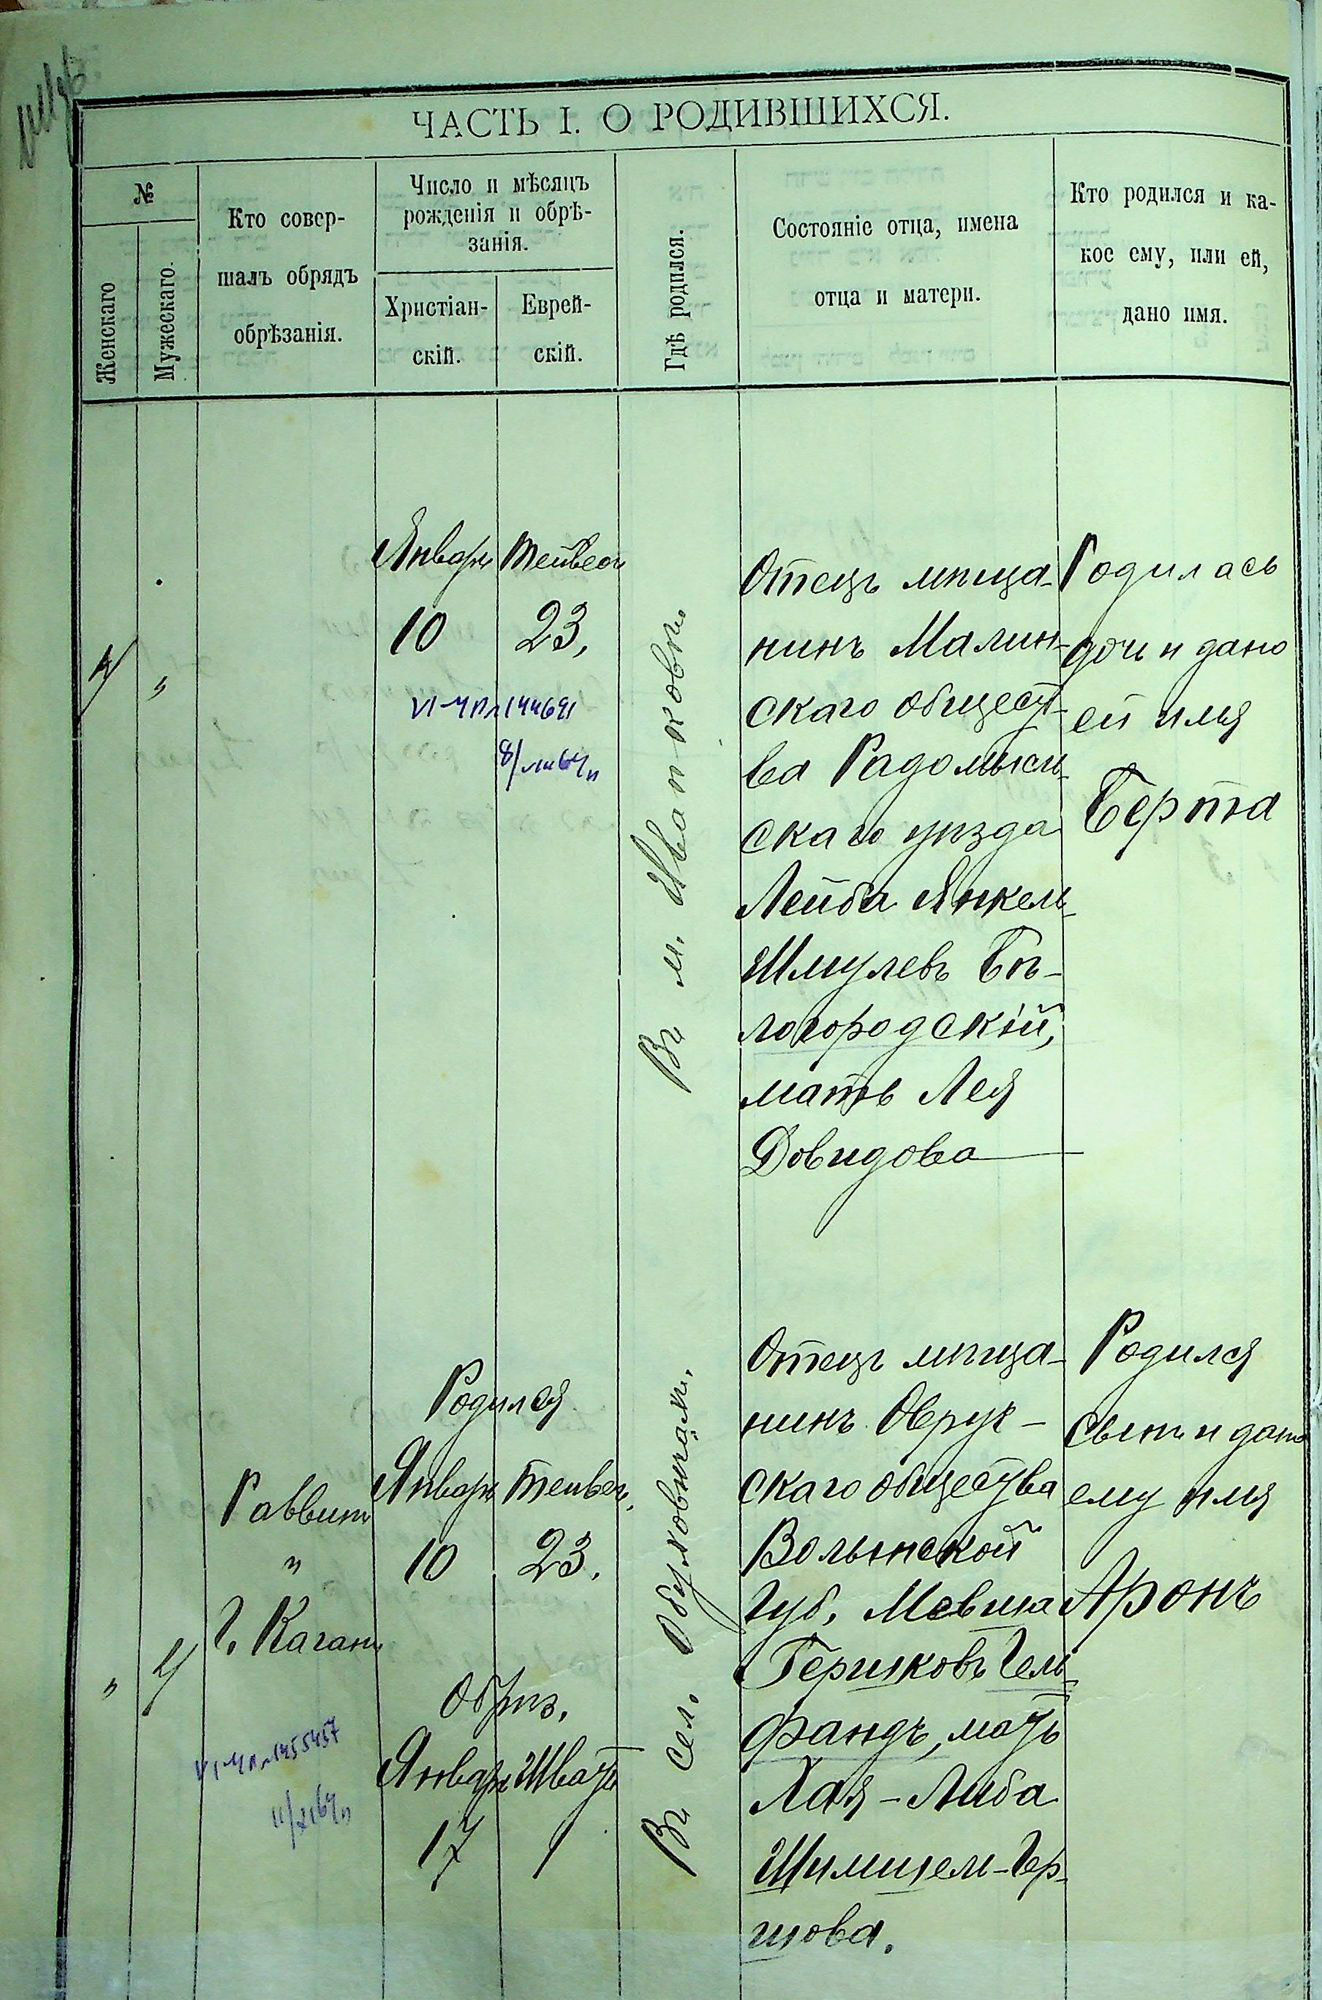 ЧАСТЬ I. О РОДИВШИХСЯ.
№
Женскаго
Мужескаго.
Кто совер-
шалъ обрядъ
обрѣзанія.
Число и мѣсяцъ
рожденія и обрѣ-
занія.
Христіан-
скій.
Еврей-
скій.
Гдѣ родился.
Состояніе отца, имена
отца и матери.
Кто родился и ка-
кое ему, или ей,
дано имя.
4
"
Январь
10
Тейвес
23,
Въ м. Иванковѣ.
Отецъ мѣща-
нинъ Малин-
скаго общест-
ва Радомысл-
скаго уѣзда
Лейба Янкель-
Шмулевъ Бѣ-
логородскій,
мать Лея
Довидова
Родилась
дочь и дано
ей имя
Берта
"
4
Раввинъ
"
Г. Каганъ
Родился
Январь
10
Тейвес,
23.
Обрѣз.
Январь
17
Шватъ
1
Въ сел. Обуховичахъ.
Отецъ мѣща-
нинъ Овруч-
скаго общества
Волынской
губ. Мовша
Гершковъ Гель-
фандъ, мать
Хая-Либа
Шимшем-Гер-
шова.
Родился
сынъ и дано
ему имя
Аронъ